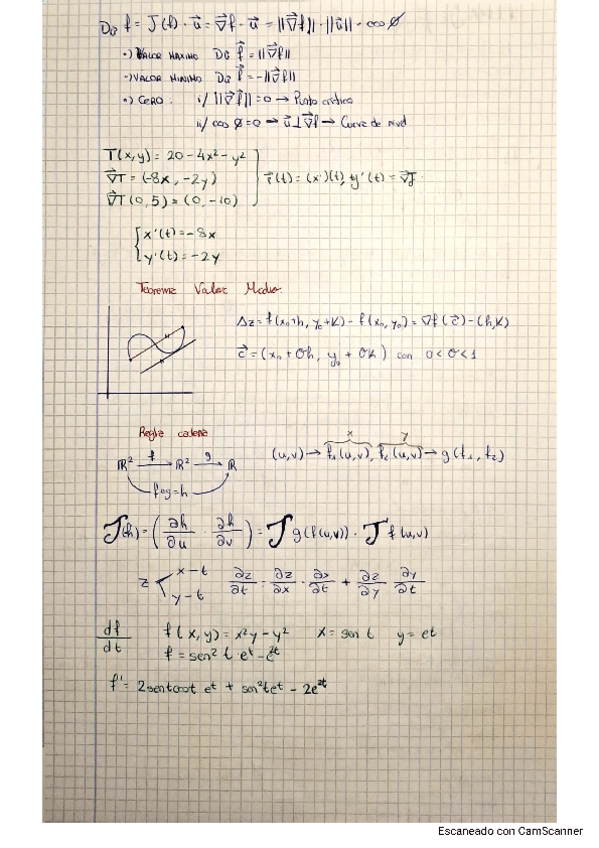 Dū f = J(f) · ū = ∇f · ū = ||∇f|| · ||ū|| · cos ø
·) VALOR MAXIMO Dū f = ||∇f||
·) VALOR MINIMO Dū f = -||∇f||
·) CERO: i/ ||∇f|| = 0 → Punto critico
ii/ cos ø = 0 → ū ⊥ ∇f → Curva de nivel
T(x,y) = 20 - 4x² - y²
∇T = (-8x, -2y) } r(t) = (x')(t), y'(t) = ∇f
∇T(0,5) = (0, -10)
{ x'(t) = -8x
y'(t) = -2y
Teorema Valor Medio
Δz = f(x₀+h, y₀+k) - f(x₀, y₀) = ∇f(c) - (h,k)
c = (x₀ + Θh, y₀ + Θk) con 0 < Θ < 1
Regla cadena
x y
ℝ² f→ ℝ² g→ ℝ (u,v) → f₁(u,v), f₂(u,v) → g(f₁, f₂)
f∘g = h
J(h) = (∂h/∂u · ∂h/∂v) = J g(f(u,v)) · J f(u,v)
z < x - t y - t ∂z/∂t = ∂z/∂x · ∂x/∂t + ∂z/∂y ∂y/∂t
df/dt f(x,y) = x²y - y² x = sen t y = et
f = sen² t · eᵗ - e²ᵗ
f' = 2sentcost eᵗ + sen²teᵗ - 2e²ᵗ
Escaneado con CamScanner